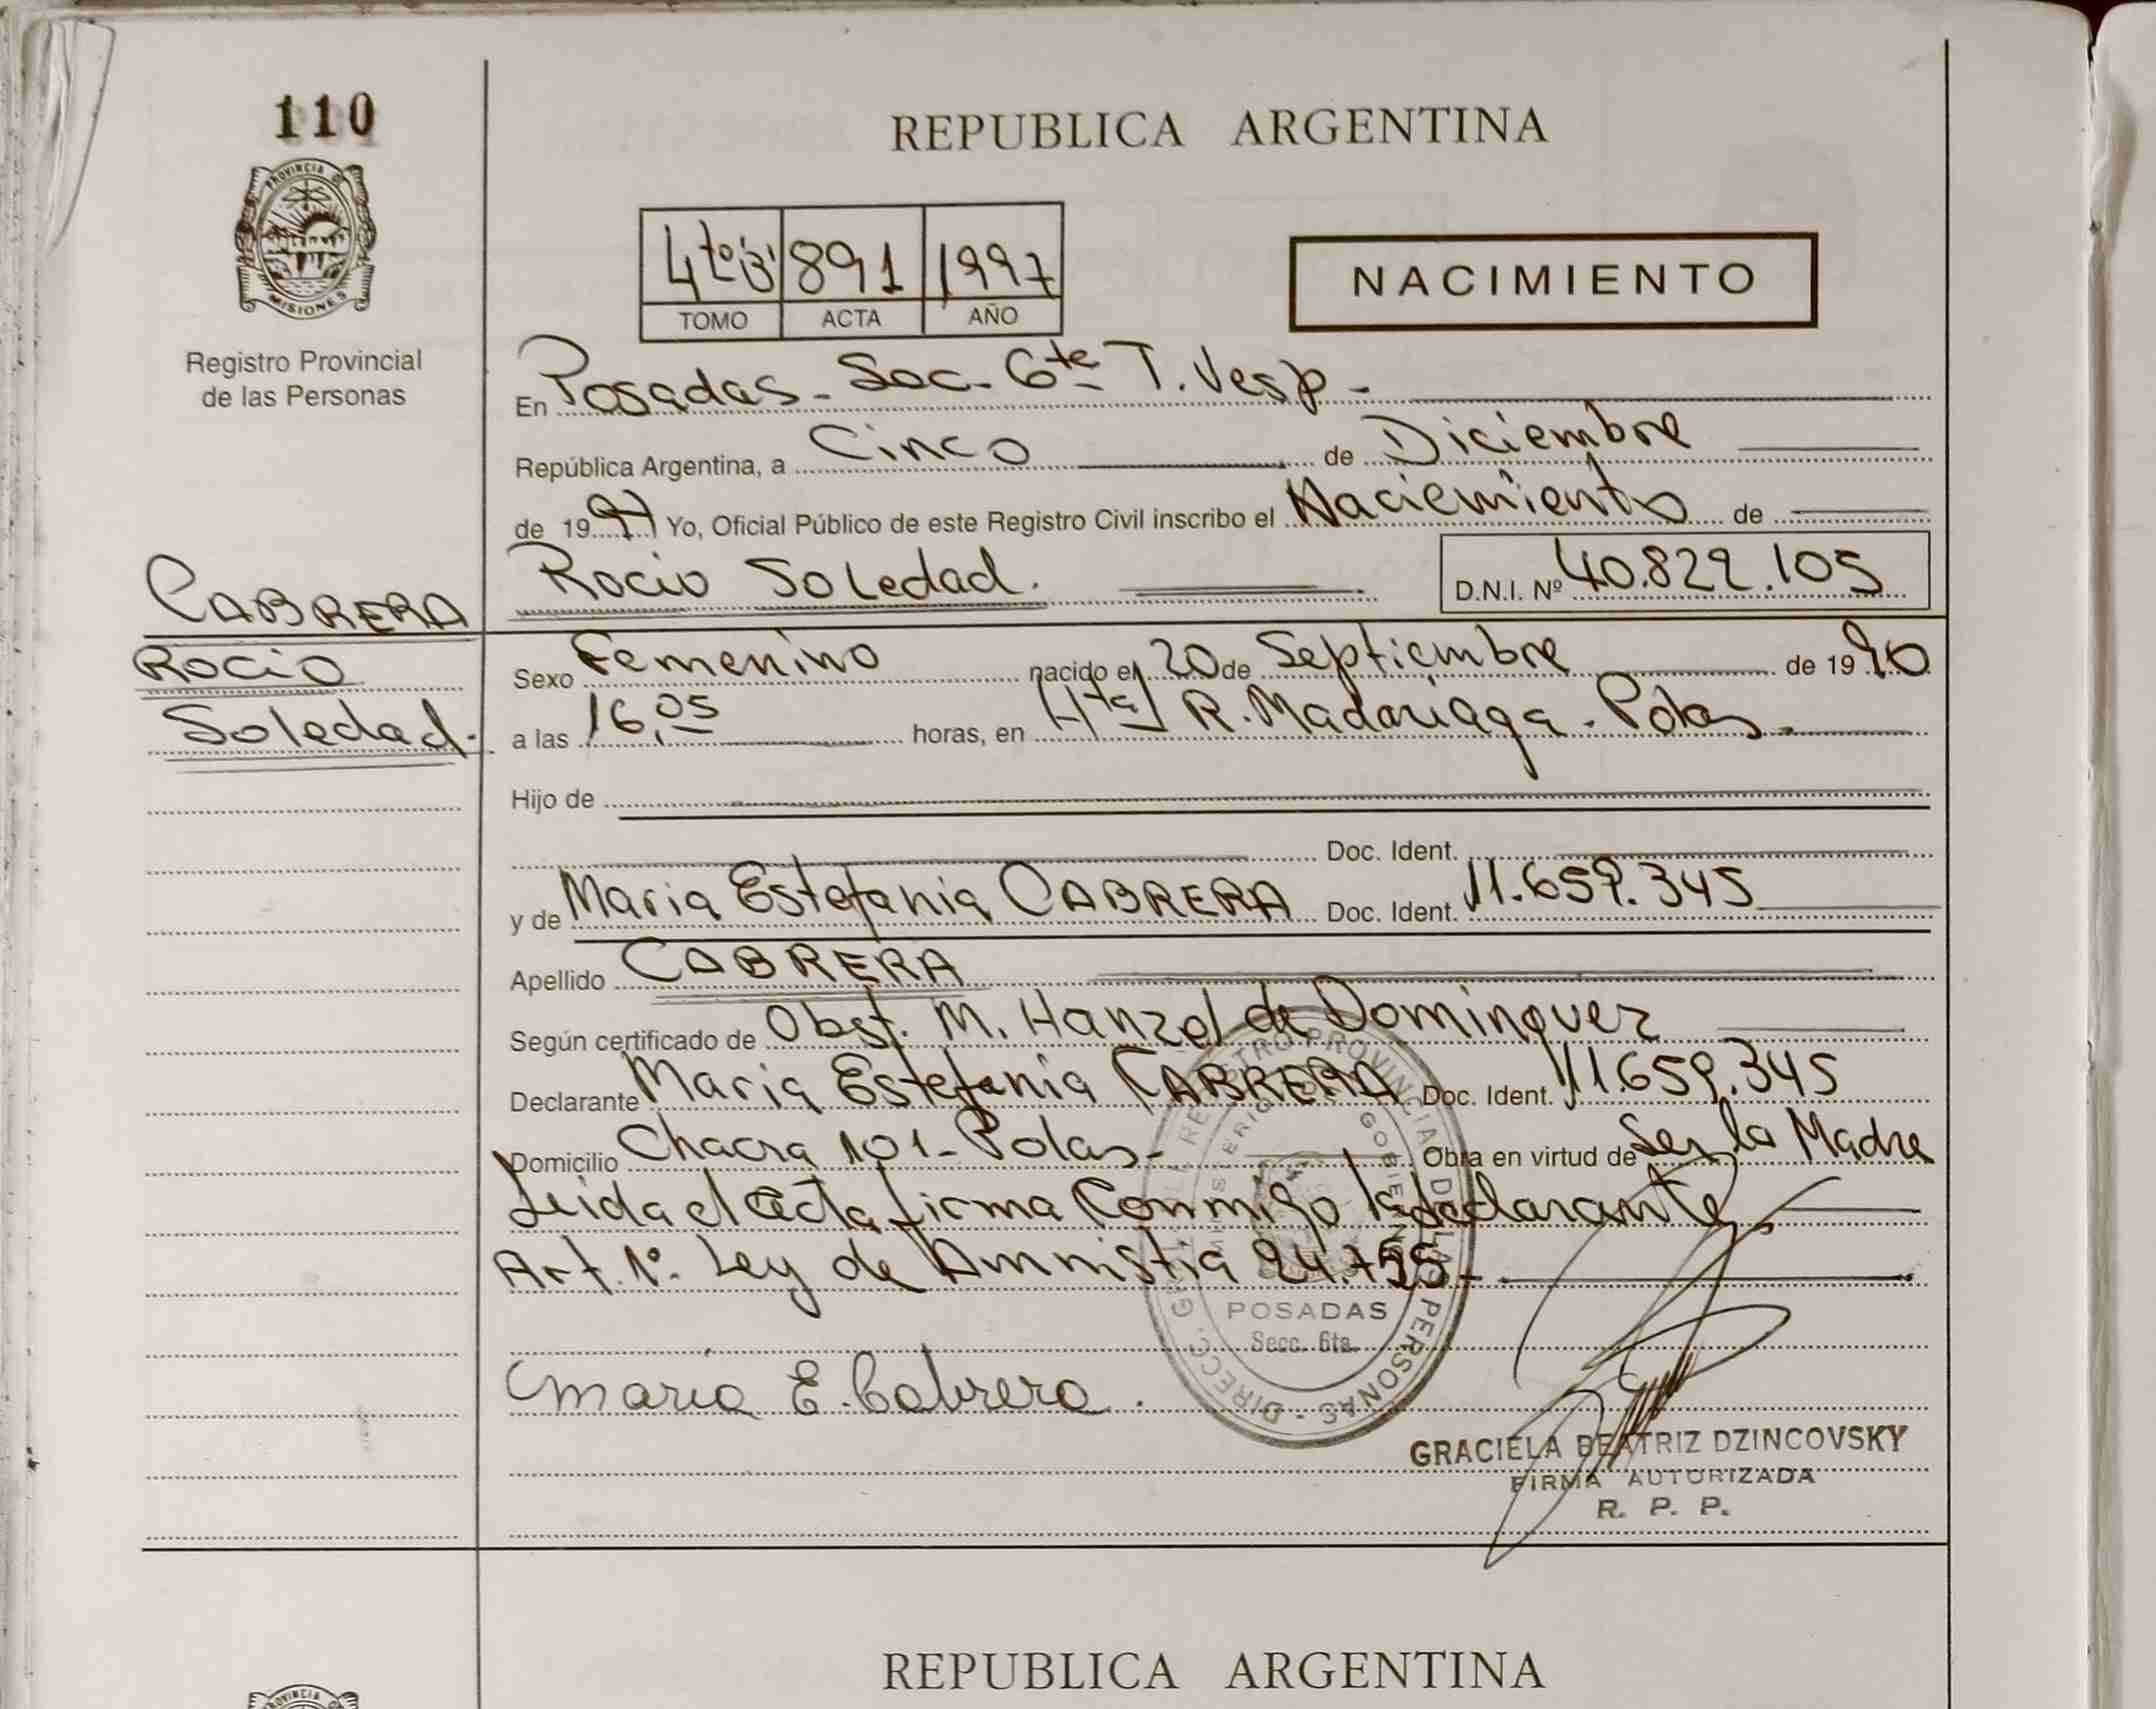 110
REPUBLICA ARGENTINA
PROVINCIA D
MISIONES
Registro Provincial
de las Personas
4to 891 1997
TOMO ACTA AÑO
NACIMIENTO
En Posadas - Sec. 6te T. Vesp -
República Argentina, a Cinco de Diciembre
de 1997 Yo, Oficial Público de este Registro Civil inscribo el Naciemiento de
Rocio Soledad. D.N.I. Nº 40.822.105
CABRERA
Rocio
Soledad.
Sexo Femenino nacido el 20 de Septiembre de 1990
a las 16,05 horas, en Htal R. Madariaga - Pdas.
Hijo de
Doc. Ident.
y de Maria Estefania CABRERA Doc. Ident. 11.659.345
Apellido CABRERA
Según certificado de Obst. M. Hanzel de Dominguez
Declarante Maria Estefania CABRERA Doc. Ident. 11.659.345
Domicilio Chacra 101 - Pdas - Obra en virtud de Ser la Madre
Leida el acta firma Conmigo la declarante
Art. 1º. Ley de Amnistia 24.755 -
POSADAS
Secc. 6ta.
Maria E. Cabrera.
GRACIELA BEATRIZ DZINCOVSKY
FIRMA AUTORIZADA
R. P. P.
REPUBLICA ARGENTINA